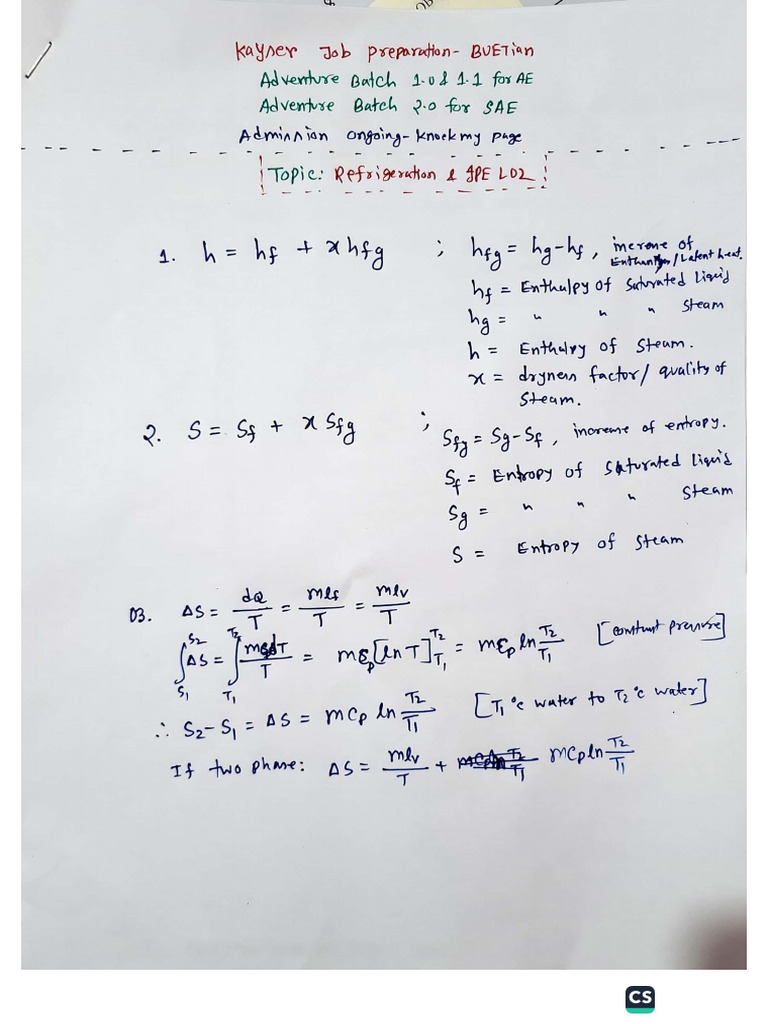 Kayser Job Preparation- BUETian
Adventure Batch 1.0 & 1.1 for AE
Adventure Batch 2.0 for SAE
Admission ongoing- Knock my page
Topic: Refrigeration & IPE L02
1. h = hf + x hfg ; hfg = hg-hf, increase of Enthalpy/Latent heat.
hf = Enthalpy of Saturated liquid
hg = " " " Steam
h = Enthalpy of Steam.
x = dryness factor/ quality of
Steam.
2. S = Sf + x Sfg ; Sfg = Sg-Sf, increase of entropy.
Sf = Entropy of Saturated liquid
Sg = " " " Steam
S = Entropy of Steam
03. ΔS = dQ/T = mlf/T = mlv/T
∫S1^S2 ΔS = ∫T1^T2 mCpdT/T = mCp[ln T]T1^T2 = mCp ln T2/T1 [constant pressure]
∴ S2-S1 = ΔS = mCp ln T2/T1 [T1 °c water to T2 °c water]
If two phase: ΔS = mlv/T + mCp ln T2/T1
CS